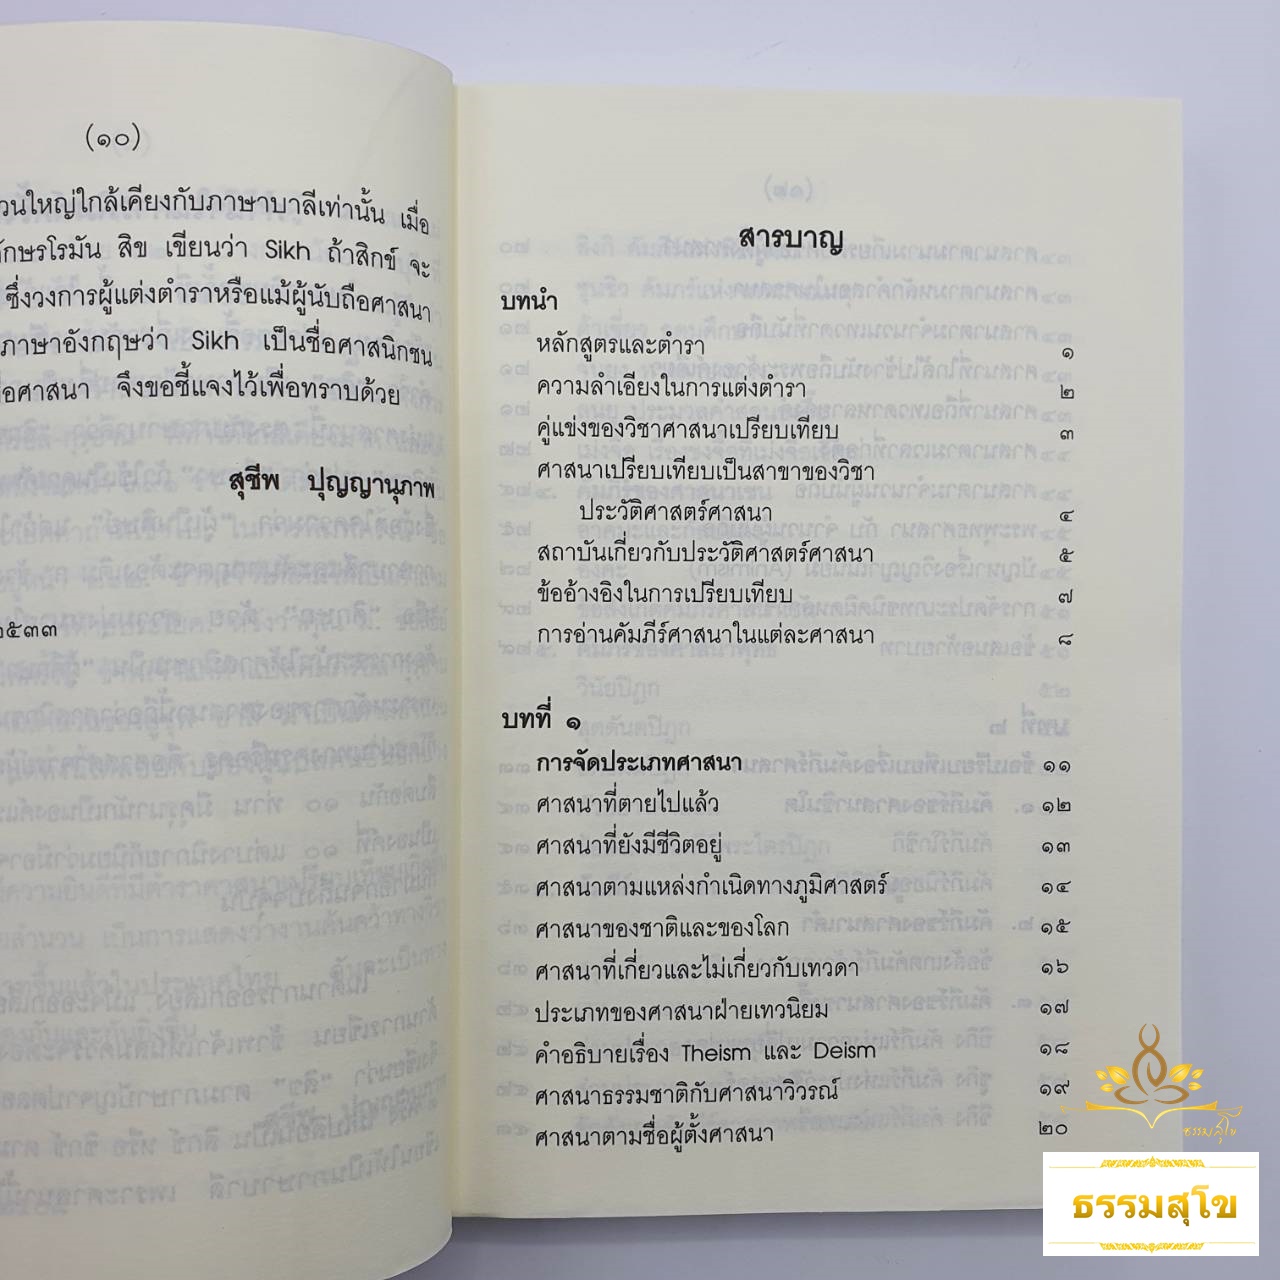 (๑๐)
ใหญ่ใกล้เคียงกับภาษาบาลีเท่านั้น เมื่อ
โรมัน สิข เขียนว่า Sikh ถ้าสิกข์ จะ
ซึ่งวงการผู้แต่งตำราหรือแม้ผู้นับถือศาสนา
ภาษาอังกฤษว่า Sikh เป็นชื่อศาสนิกชน
ศาสนา จึงขอชี้แจงไว้เพื่อทราบด้วย
สุชีพ ปุญญานุภาพ
๕๓๓
สารบาญ
บทนำ
หลักสูตรและตำรา ๑
ความลำเอียงในการแต่งตำรา ๒
คู่แข่งของวิชาศาสนาเปรียบเทียบ ๓
ศาสนาเปรียบเทียบเป็นสาขาของวิชา
ประวัติศาสตร์ศาสนา ๔
สถาบันเกี่ยวกับประวัติศาสตร์ศาสนา ๕
ข้ออ้างอิงในการเปรียบเทียบ ๗
การอ่านคัมภีร์ศาสนาในแต่ละศาสนา ๘
บทที่ ๑
การจัดประเภทศาสนา ๑๑
ศาสนาที่ตายไปแล้ว ๑๒
ศาสนาที่ยังมีชีวิตอยู่ ๑๓
ศาสนาตามแหล่งกำเนิดทางภูมิศาสตร์ ๑๔
ศาสนาของชาติและของโลก ๑๕
ศาสนาที่เกี่ยวและไม่เกี่ยวกับเทวดา ๑๖
ประเภทของศาสนาฝ่ายเทวนิยม ๑๗
คำอธิบายเรื่อง Theism และ Deism ๑๘
ศาสนาธรรมชาติกับศาสนาวิวรณ์ ๑๙
ศาสนาตามชื่อผู้ตั้งศาสนา ๒๐
ธรรมสุโข
ธรรมสุโข